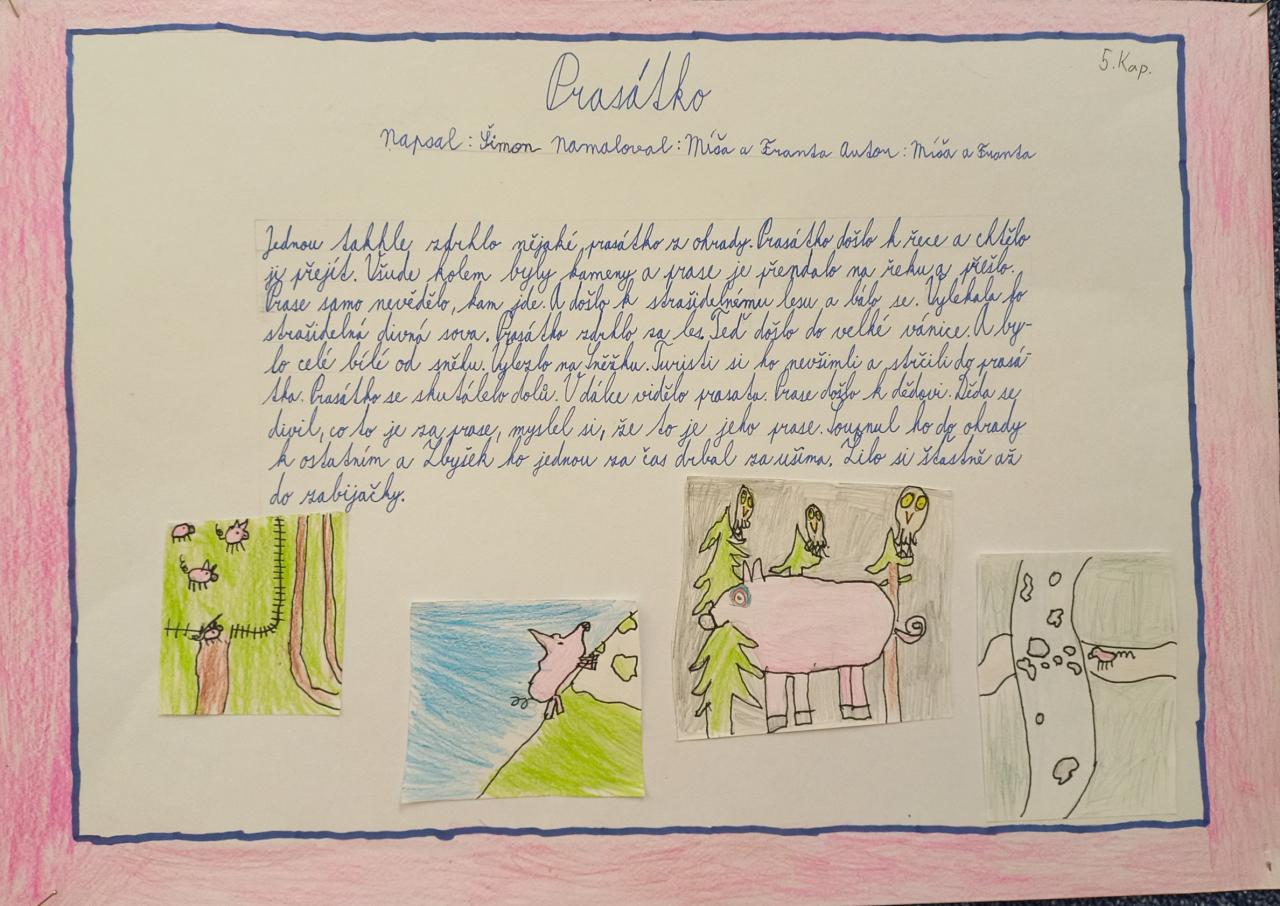 5. Kap.
Prasátko
Napsal: Šimon Namaloval: Míša a Franta Autor: Míša a Franta
Jednou takhle zdrhlo nějaké prasátko z ohrady. Prasátko došlo k řece a chtělo
jí přejít. Všude kolem byly kameny a prase je přendalo na řeku a přešlo.
Prase samo nevědělo, kam jde. A došlo k strašidelnému lesu a bálo se. Vylekala ho
strašidelná divná sova. Prasátko zdrhlo za les. Teď došlo do velké vánice. A by-
lo celé bílé od sněhu. Vylezlo na Sněžku. Turisti si ho nevšimli a strčili do prasá-
tka. Prasátko se skutálelo dolů. V dálce vidělo prasata. Prase došlo k dědovi. Děda se
divil, co to je za prase, myslel si, že to je jeho prase. Šoupnul ho do ohrady
k ostatním a Zbyšek ho jednou za čas drbal za ušima. Žilo si šťastně až
do zabijačky.